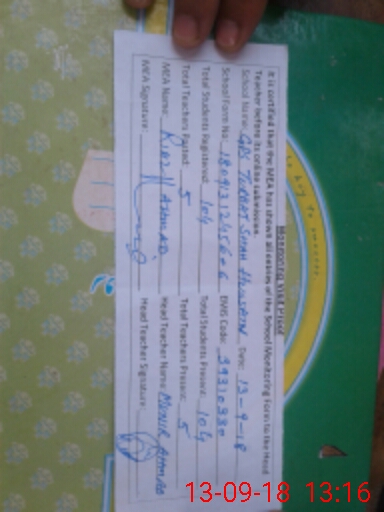 Monitoring Visit Proof
It is certified that the MEA has shown all entries of the School Monitoring Form to the Head
Teacher before its online submission.
School Name: GPS TURBAT SHAH HUSSAIN Date: 13-9-18
School Form No: EMIS Code: 39310330
Total Students Registered: 104 Total Students Present: 104
Total Teachers Posted: 5 Total Teachers Present: 5
MEA Name: RIAZ AHMAD Head Teacher Name: MUNIR AHMAD
MEA Signature: Head Teacher Signature:
key to success
13-09-18 13:16